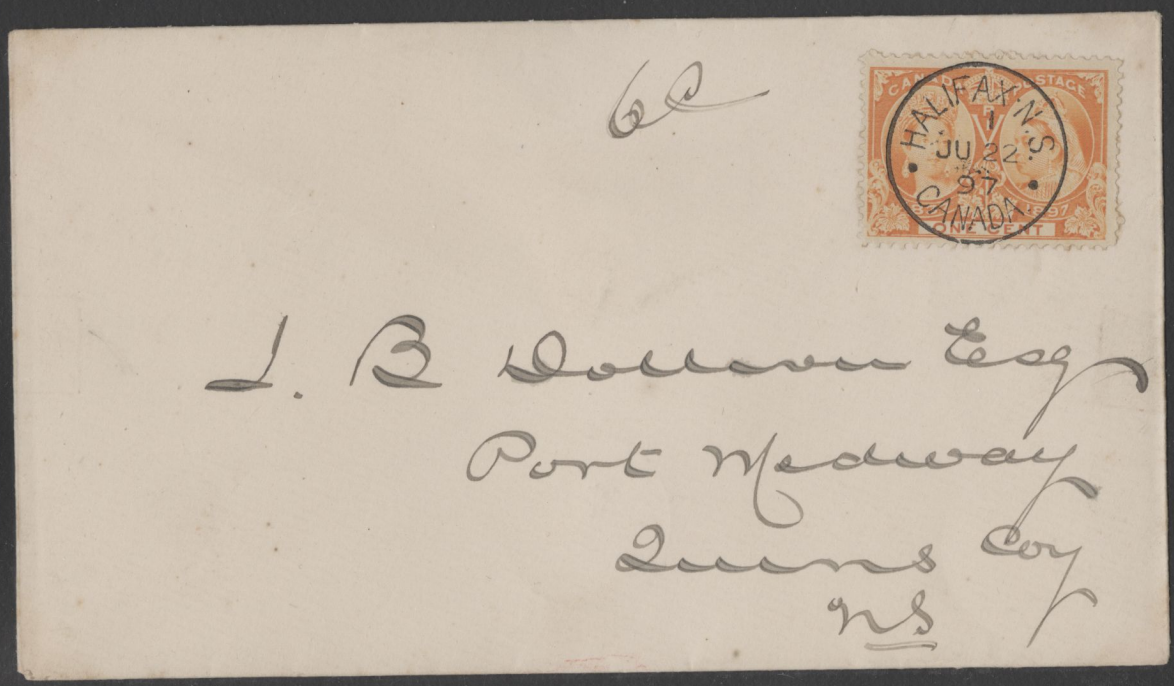 6c
CANADA POSTAGE
HALIFAX·N.S
1
JU 22
97
CANADA
1897
ONE CENT
J. B Dolliver Esq
Port Medway
Queens Coy
NS